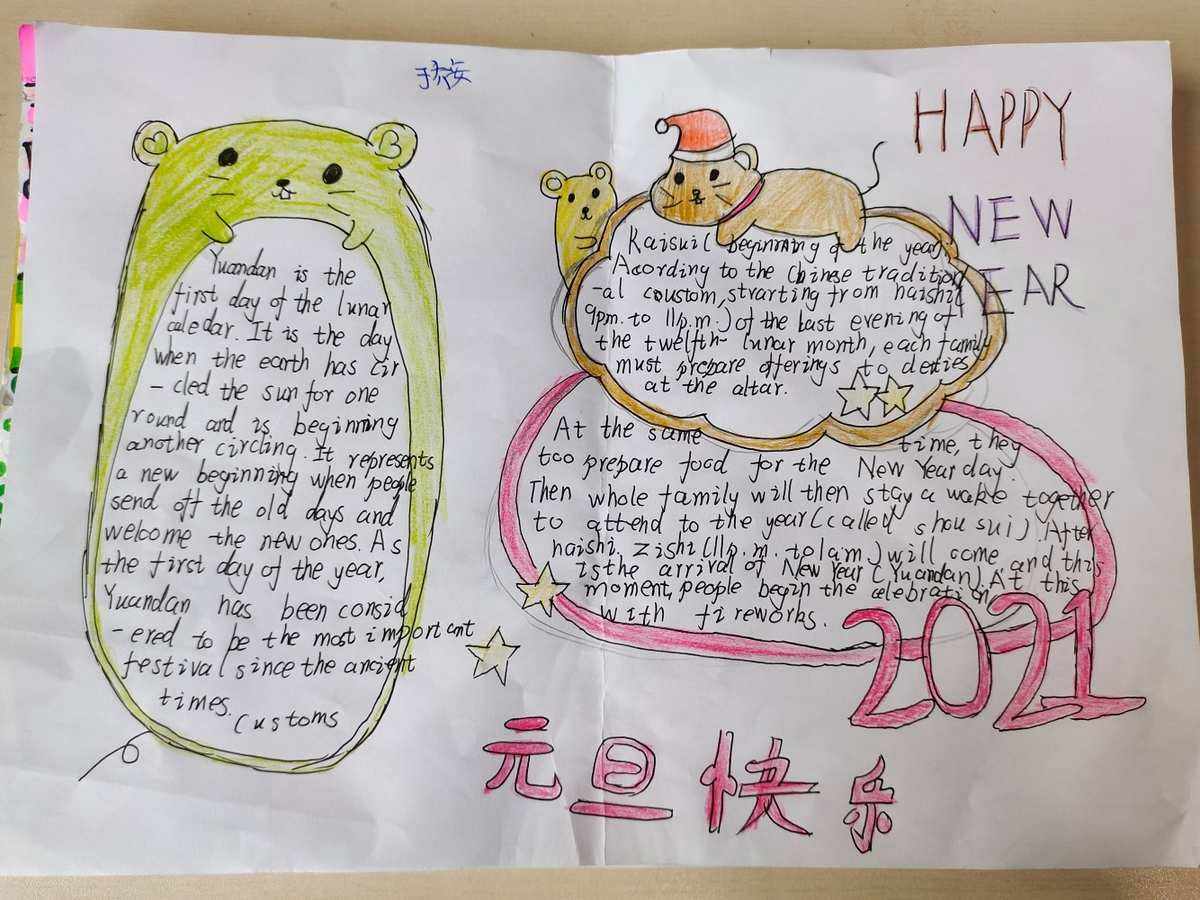 Yuandan is the
first day of the lunar
caledar. It is the day
when the earth has cir
-cled the sun for one
round and is beginning
another circling. It represents
a new beginning when people
send off the old days and
welcome the new ones. As
the first day of the year,
Yuandan has been consid
-ered to be the most important
festival since the ancient
times.
Customs
HAPPY
NEW
YEAR
Kaisui( beginning of the year)
Acording to the Chinese tradition
-al coustom, strarting from haishi(
9pm. to 11p.m.) of the last evening of
the twelfth lunar month, each family
must prepare offerings to deities
at the altar.
At the same time, they
too prepare food for the New Year day.
Then whole family will then stay a wake together
to attend to the year (called shousui). After
haishi, zishi (11p.m. to 1am.) will come, and this
is the arrival of New Year (Yuandan). At this
moment, people begin the celebration
with fireworks.
2021
元旦快乐